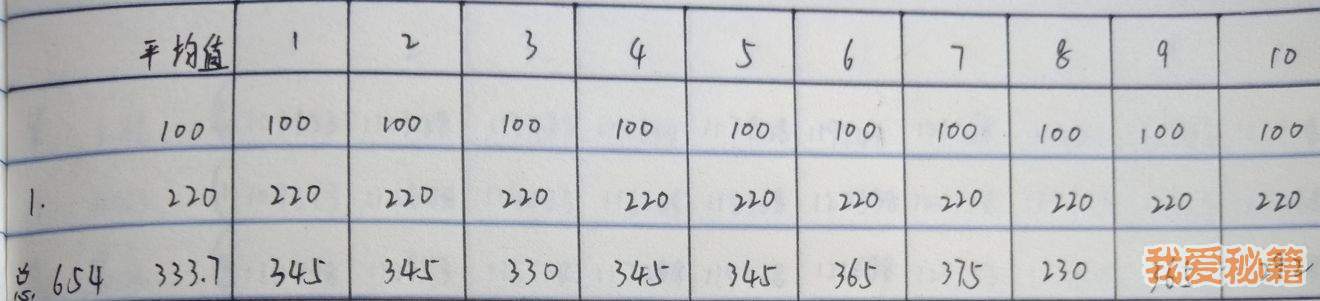 平均值 1 2 3 4 5 6 7 8 9 10
100 100 100 100 100 100 100 100 100 100 100
1. 220 220 220 220 220 220 220 220 220 220 220
654 333.7 345 345 330 345 345 365 375 230
我爱秘籍